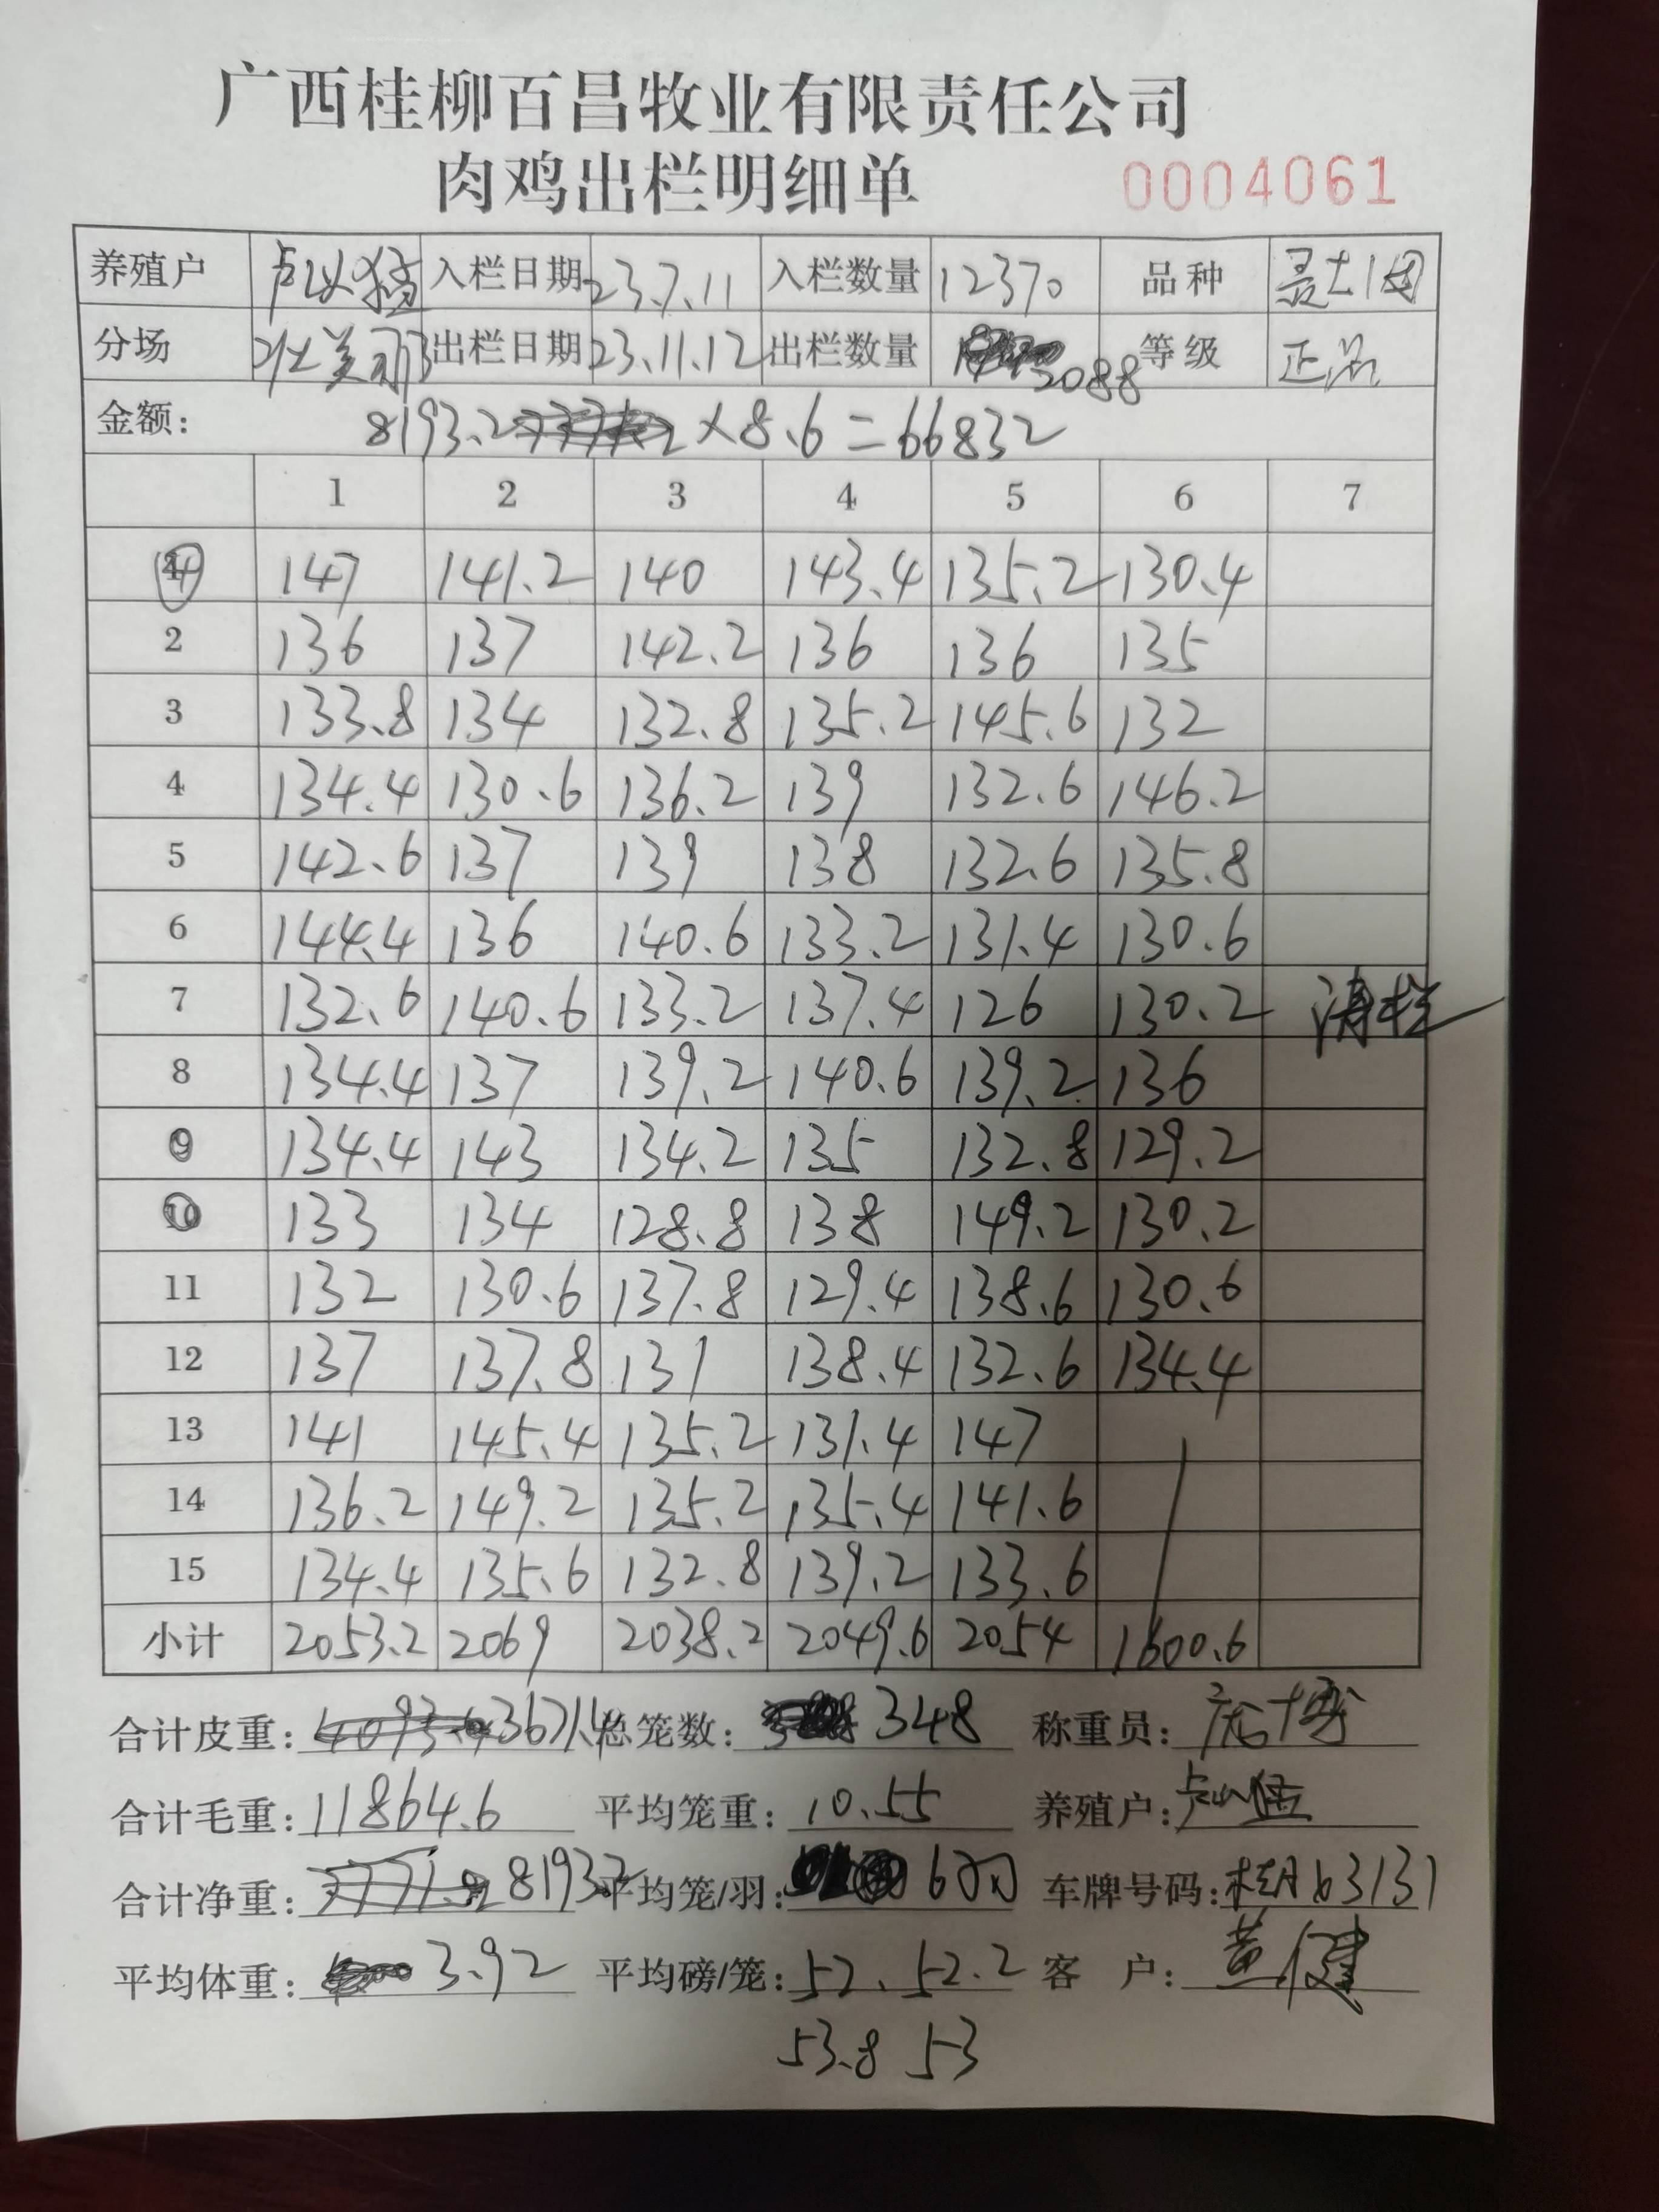 广西桂柳百昌牧业有限责任公司
肉鸡出栏明细单 0004061
养殖户 入栏日期 23.7.11 入栏数量 12370 品种
分场 出栏日期 23.11.12 出栏数量 2088 等级 正品
金额: 8193.2 ×8.6=66832
1 2 3 4 5 6 7
147 141.2 140 143.4 135.2 130.4
2 136 137 142.2 136 136 135
3 133.8 134 132.8 135.2 145.6 132
4 134.4 130.6 136.2 139 132.6 146.2
5 142.6 137 139 138 132.6 135.8
6 144.4 136 140.6 133.2 131.4 130.6
7 132.6 140.6 133.2 137.4 126 130.2 清栏
8 134.4 137 139.2 140.6 139.2 136
9 134.4 143 134.2 135 132.8 129.2
10 133 134 128.8 138 149.2 130.2
11 132 130.6 137.8 129.4 138.6 130.6
12 137 137.8 131 138.4 132.6 134.4
13 141 145.4 135.2 131.4 147
14 136.2 149.2 135.2 135.4 141.6
15 134.4 135.6 132.8 139.2 133.6
小计 2053.2 2069 2038.2 2049.6 2054 1600.6
合计皮重: 3671.4 总笼数: 348 称重员:
合计毛重: 11864.6 平均笼重: 10.55 养殖户:
合计净重: 8193.2 平均笼/羽: 6羽 车牌号码: 63131
平均体重: 3.92 平均磅/笼: 52. 52.2 客 户: 黄健
53.8 53